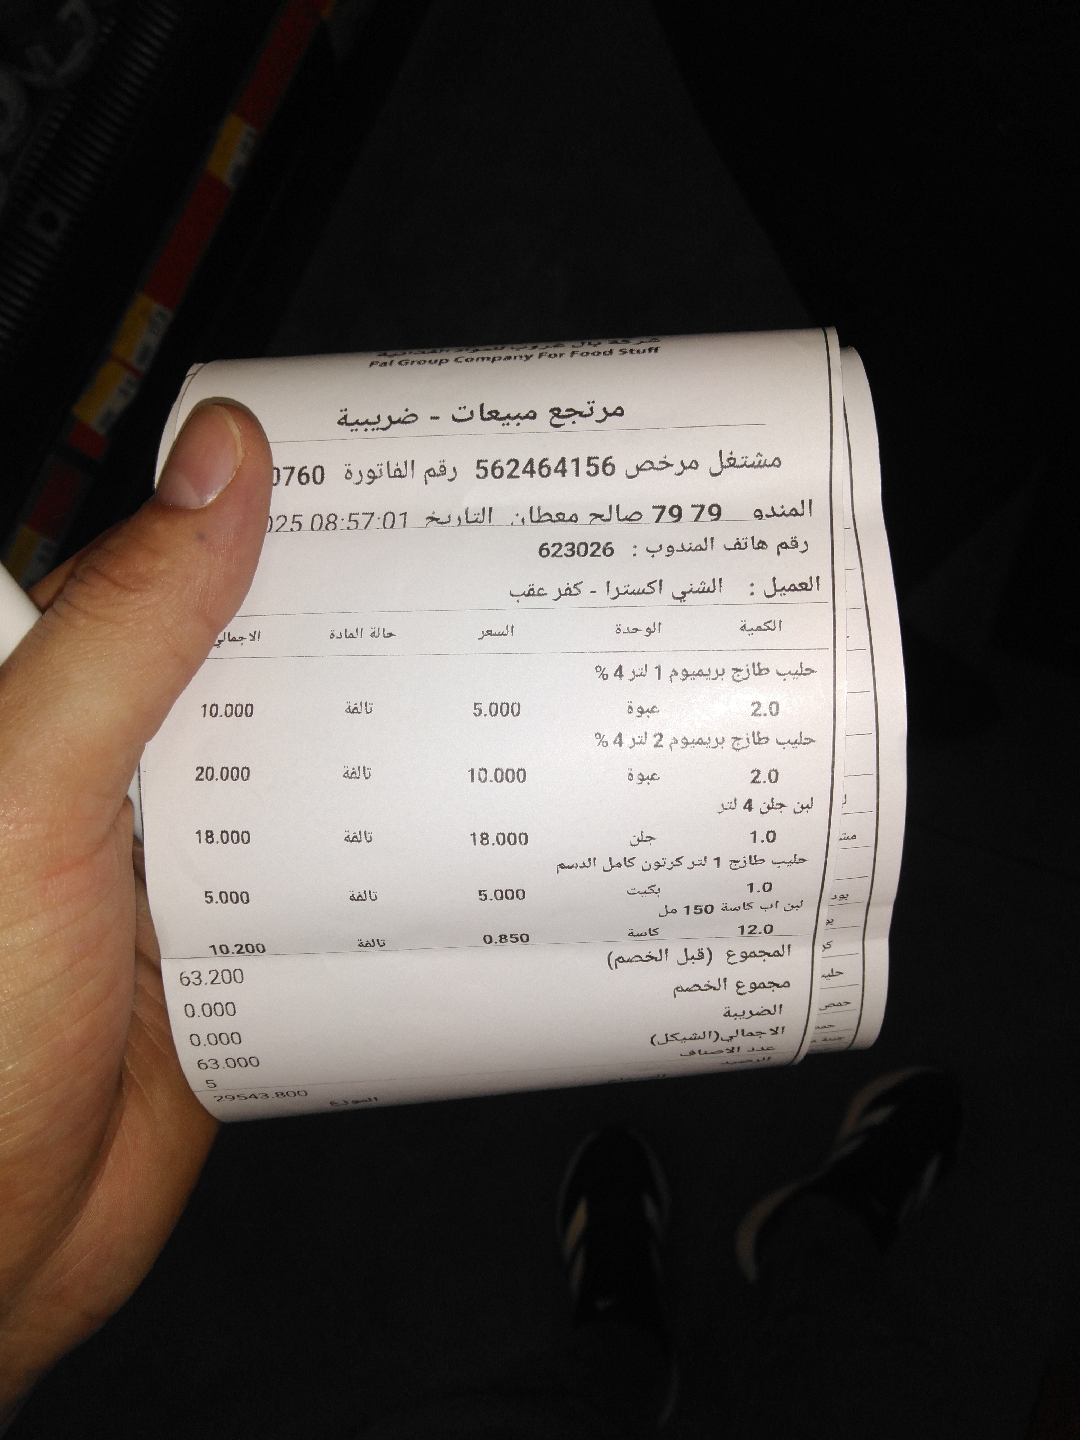 شركة بال غروب للمواد الغذائية
Pal Group Company For Food Stuff
مرتجع مبيعات - ضريبية
مشتغل مرخص 562464156 رقم الفاتورة 0760
المندو 79 79 صالح معطان التاريخ 025 08:57:01
رقم هاتف المندوب : 623026
العميل : الشني اكسترا - كفر عقب
الكمية الوحدة السعر حالة المادة الاجمالي
حليب طازج بريميوم 1 لتر 4 %
2.0 عبوة 5.000 تالفة 10.000
حليب طازج بريميوم 2 لتر 4 %
2.0 عبوة 10.000 تالفة 20.000
لبن جلن 4 لتر
1.0 جلن 18.000 تالفة 18.000
حليب طازج 1 لتر كرتون كامل الدسم
1.0 بكيت 5.000 تالفة 5.000
لبن اب كاسة 150 مل
12.0 كاسة 0.850 تالفة 10.200
المجموع (قبل الخصم) 63.200
مجموع الخصم 0.000
الضريبة 0.000
الاجمالي(الشيكل) 63.000
عدد الاصناف 5
الرصيد 29543.800
الموزع